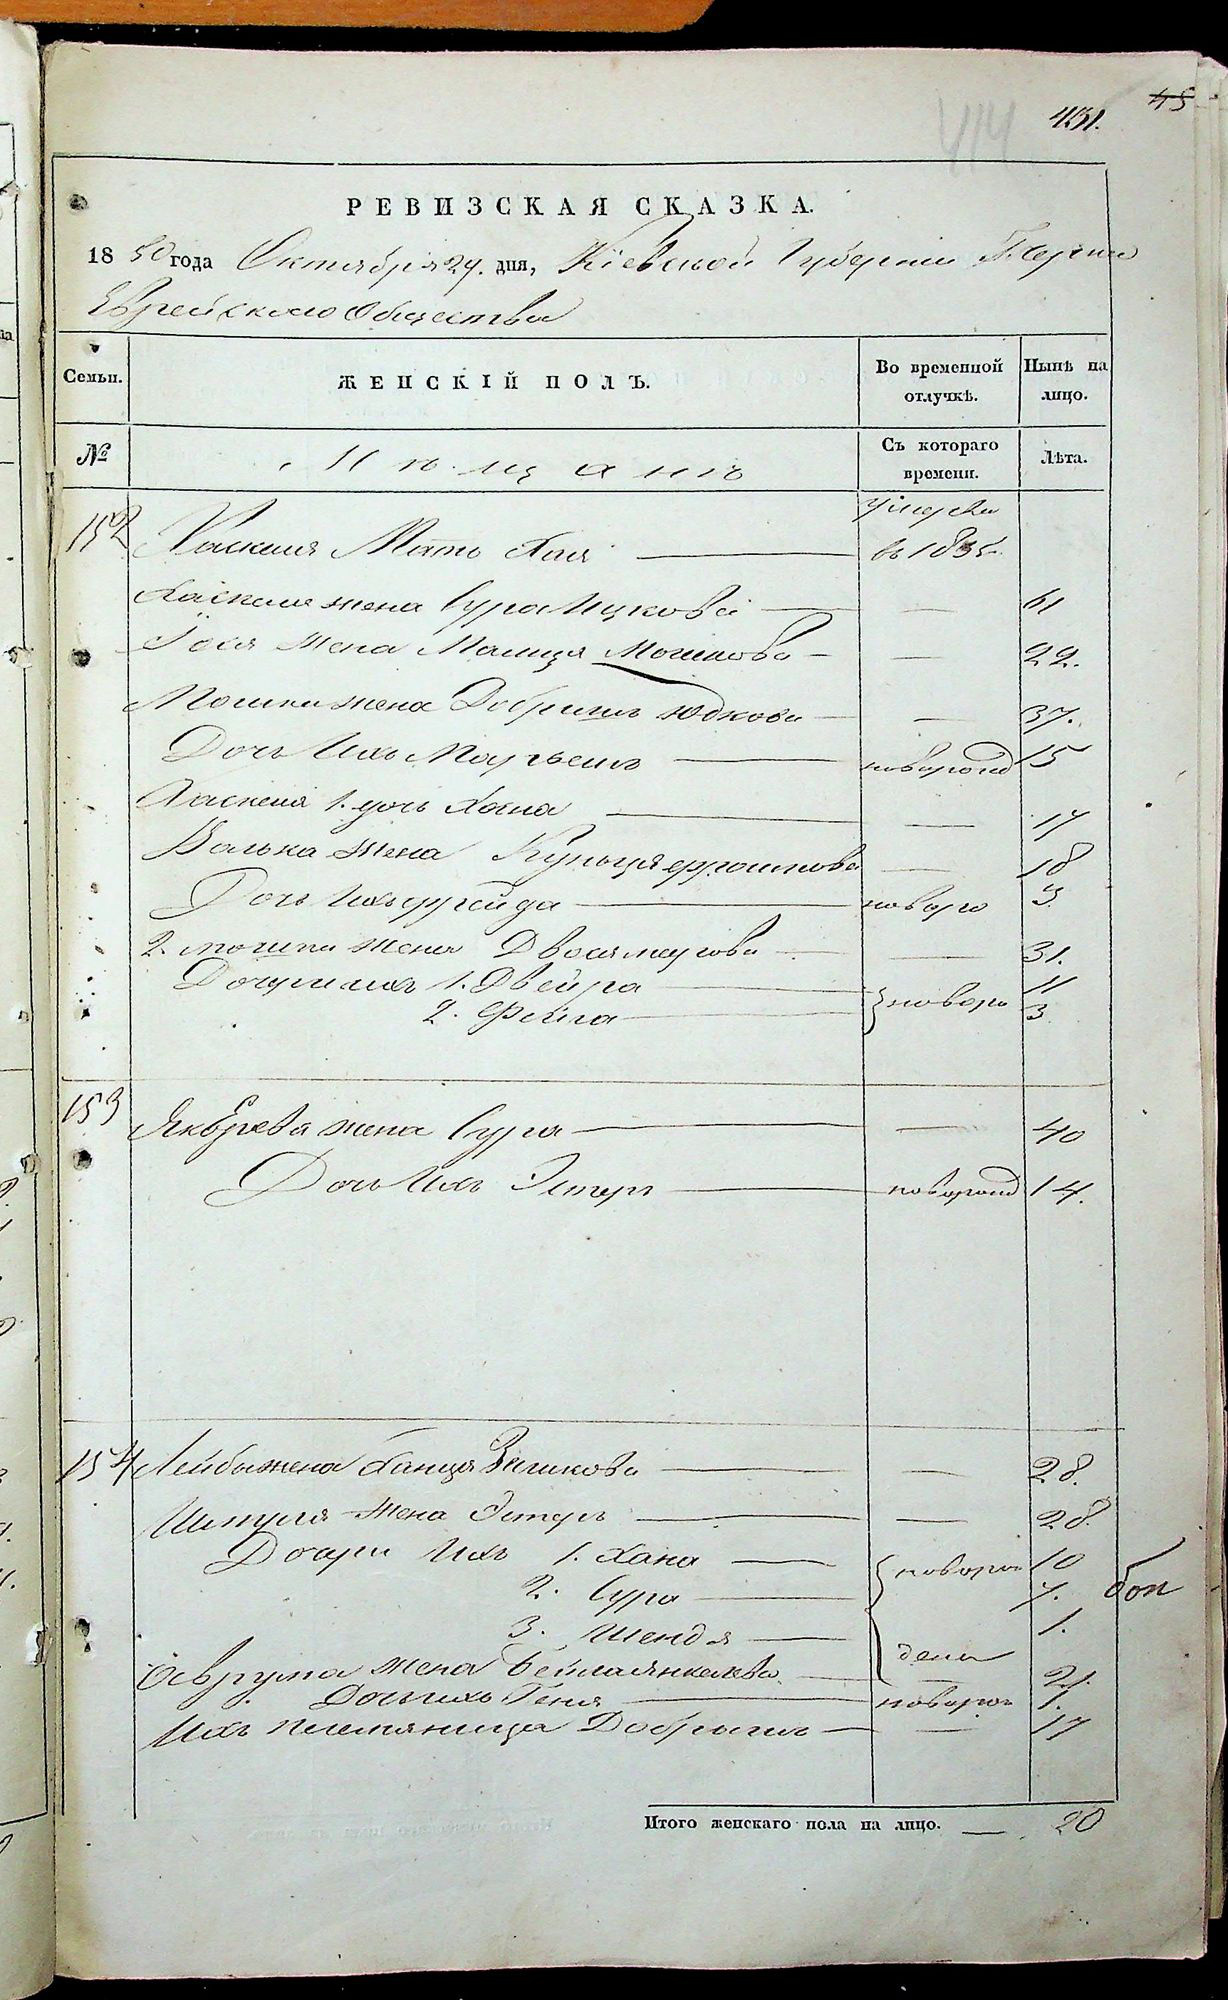 45
431.
414
РЕВИЗСКАЯ СКАЗКА.
1850 года Октября 24. дня, Кіевской Губерніи
Еврейского Общества
Семьи. ЖЕНСКІЙ ПОЛЪ. Во временной отлучкѣ. Нынѣ на лицо.
№ Мѣщанъ Съ котораго времени. Лѣта.
152 Хаскеля Мать Хая въ 1835
Хаскеля жена Сура Ицкова — 61
жена Малиця Мошкова — 22.
Мошки жена Добрышъ Юдкова — 37.
Дочь Ихъ новорожд 15
Хаскеля 1. дочь Хана — 17
Волька жена — 18
Дочь Ихъ Фрейда новоро 3
2. Мошки жена Двося — 31.
Дочери ихъ 1. Двейра новоро 11
2. Фейга 3
153 жена Сура — 40
Дочь Ихъ Эстеръ новорожд 14.
154 Лейбы жена Ханця Зеликова — 28.
жена Эстеръ — 28.
Дочери Ихъ 1. Хана новоро 10
2. Сура 7.
3. Шендя 1.
жена Бейла Янкелева — 21.
Дочь ихъ Геня новорож 1.
Ихъ племяница Добрышъ — 17
Итого женскаго пола на лицо. — 20